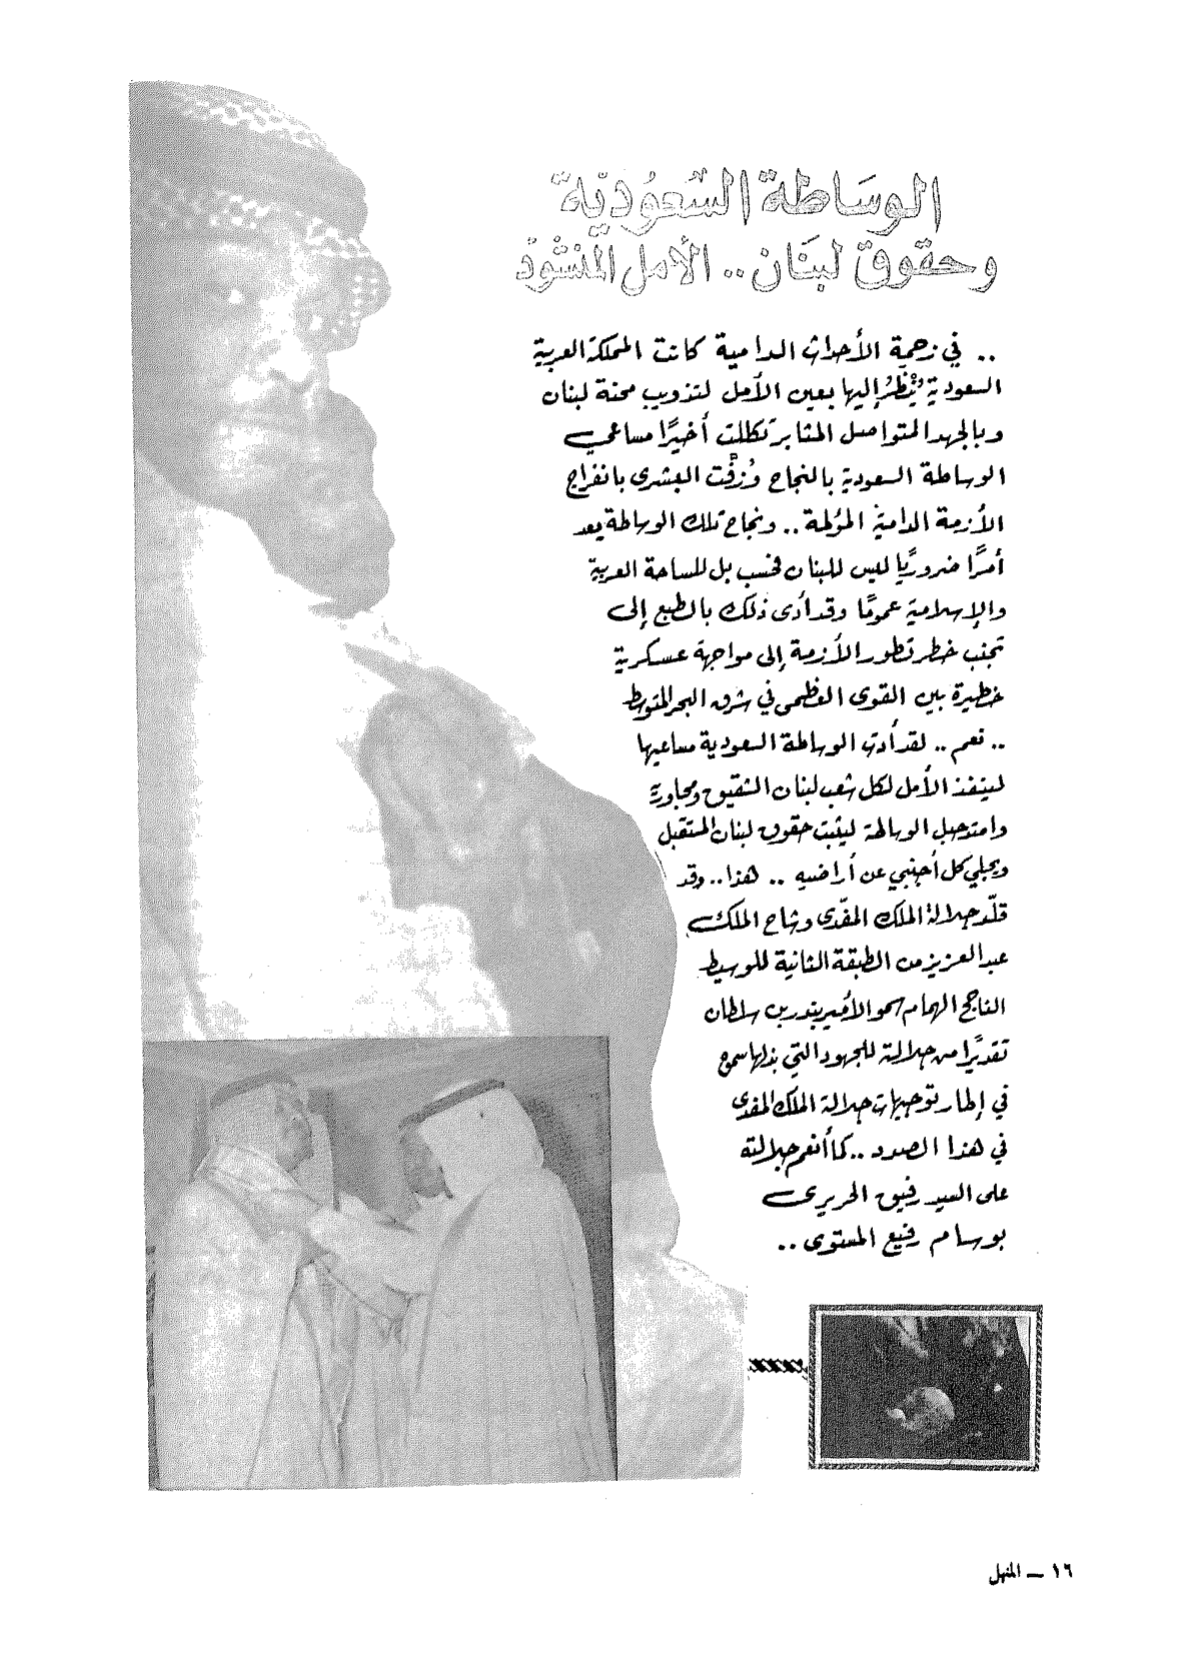 الوساطة السعودية
وحقوق لبنان .. الأمل المنشود
.. في زحمة الأحداث الدامية كانت المملكة العربية
السعودية يُنْظَرُ إليها بعين الأمل لتذويب محنة لبنان
وبالجهد المتواصل المثابر تكللت أخيرًا مساعي
الوساطة السعودية بالنجاح وزُفَّت البشرى بانفراج
الأزمة الدامية المؤلمة .. ونجاح تلك الوساطة يعد
أمرًا ضروريًا ليس للبنان فحسب بل للساحة العربية
والإسلامية عمومًا وقد أدى ذلك بالطبع إلى
تجنب خطر تطور الأزمة إلى مواجهة عسكرية
خطيرة بين القوى العظمى في شرق البحر المتوسط
.. نعم .. لقد أدت الوساطة السعودية مساعيها
لينفذ الأمل لكل شعب لبنان الشقيق ومجاوريه
وامتد حبل الوساطة ليثبت حقوق لبنان المستقبل
ويجلي كل أجنبي عن أراضيه .. هذا .. وقد
قلّد جلالة الملك المفدى وشاح الملك
عبد العزيز من الطبقة الثانية للوسيط
الناجح الهمام سمو الأمير بندر بن سلطان
تقديرًا من جلالته للجهود التي بذلها سموه
في إطار توجيهات جلالة الملك المفدى
في هذا الصدد .. كما أنعم جلالته
على السيد رفيق الحريري
بوسام رفيع المستوى ..
١٦ — المنهل